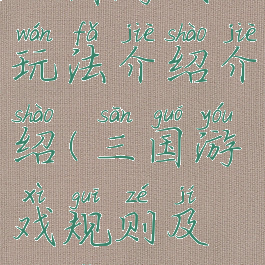 wán fǎ jiè shào jiè
玩法介绍介
shào sān guó yóu
绍(三国游
xì guī zé jí
戏规则及